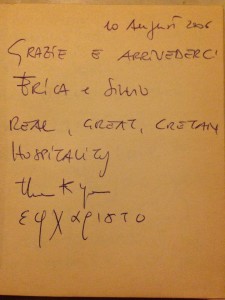 10 August 2006
GRAZIE E ARRIVEDERCI
ERICA e SILVIO
REAL, GREAT, CRETAN
HOSPITALITY
Thank you
εφχαριστο